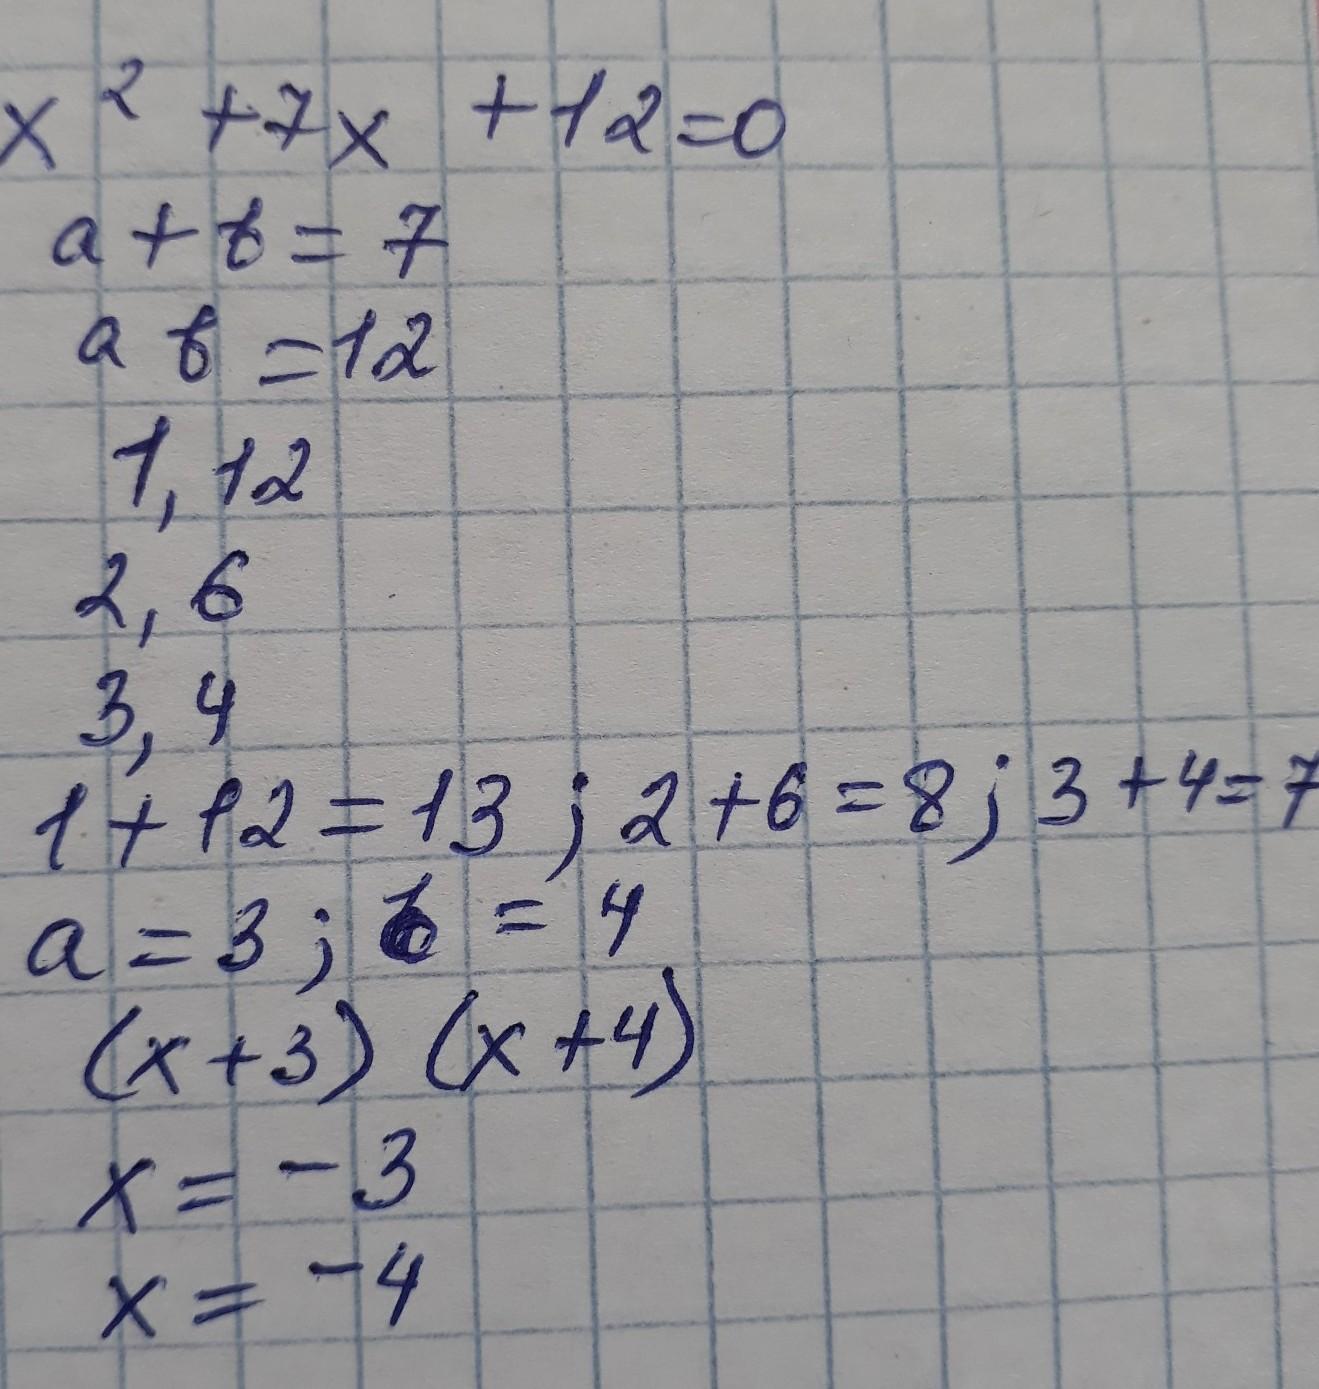 x² +7x +12=0
a+b=7
ab=12
1, 12
2, 6
3, 4
1+12=13; 2+6=8; 3+4=7
a=3; b=4
(x+3) (x+4)
x=-3
x=-4